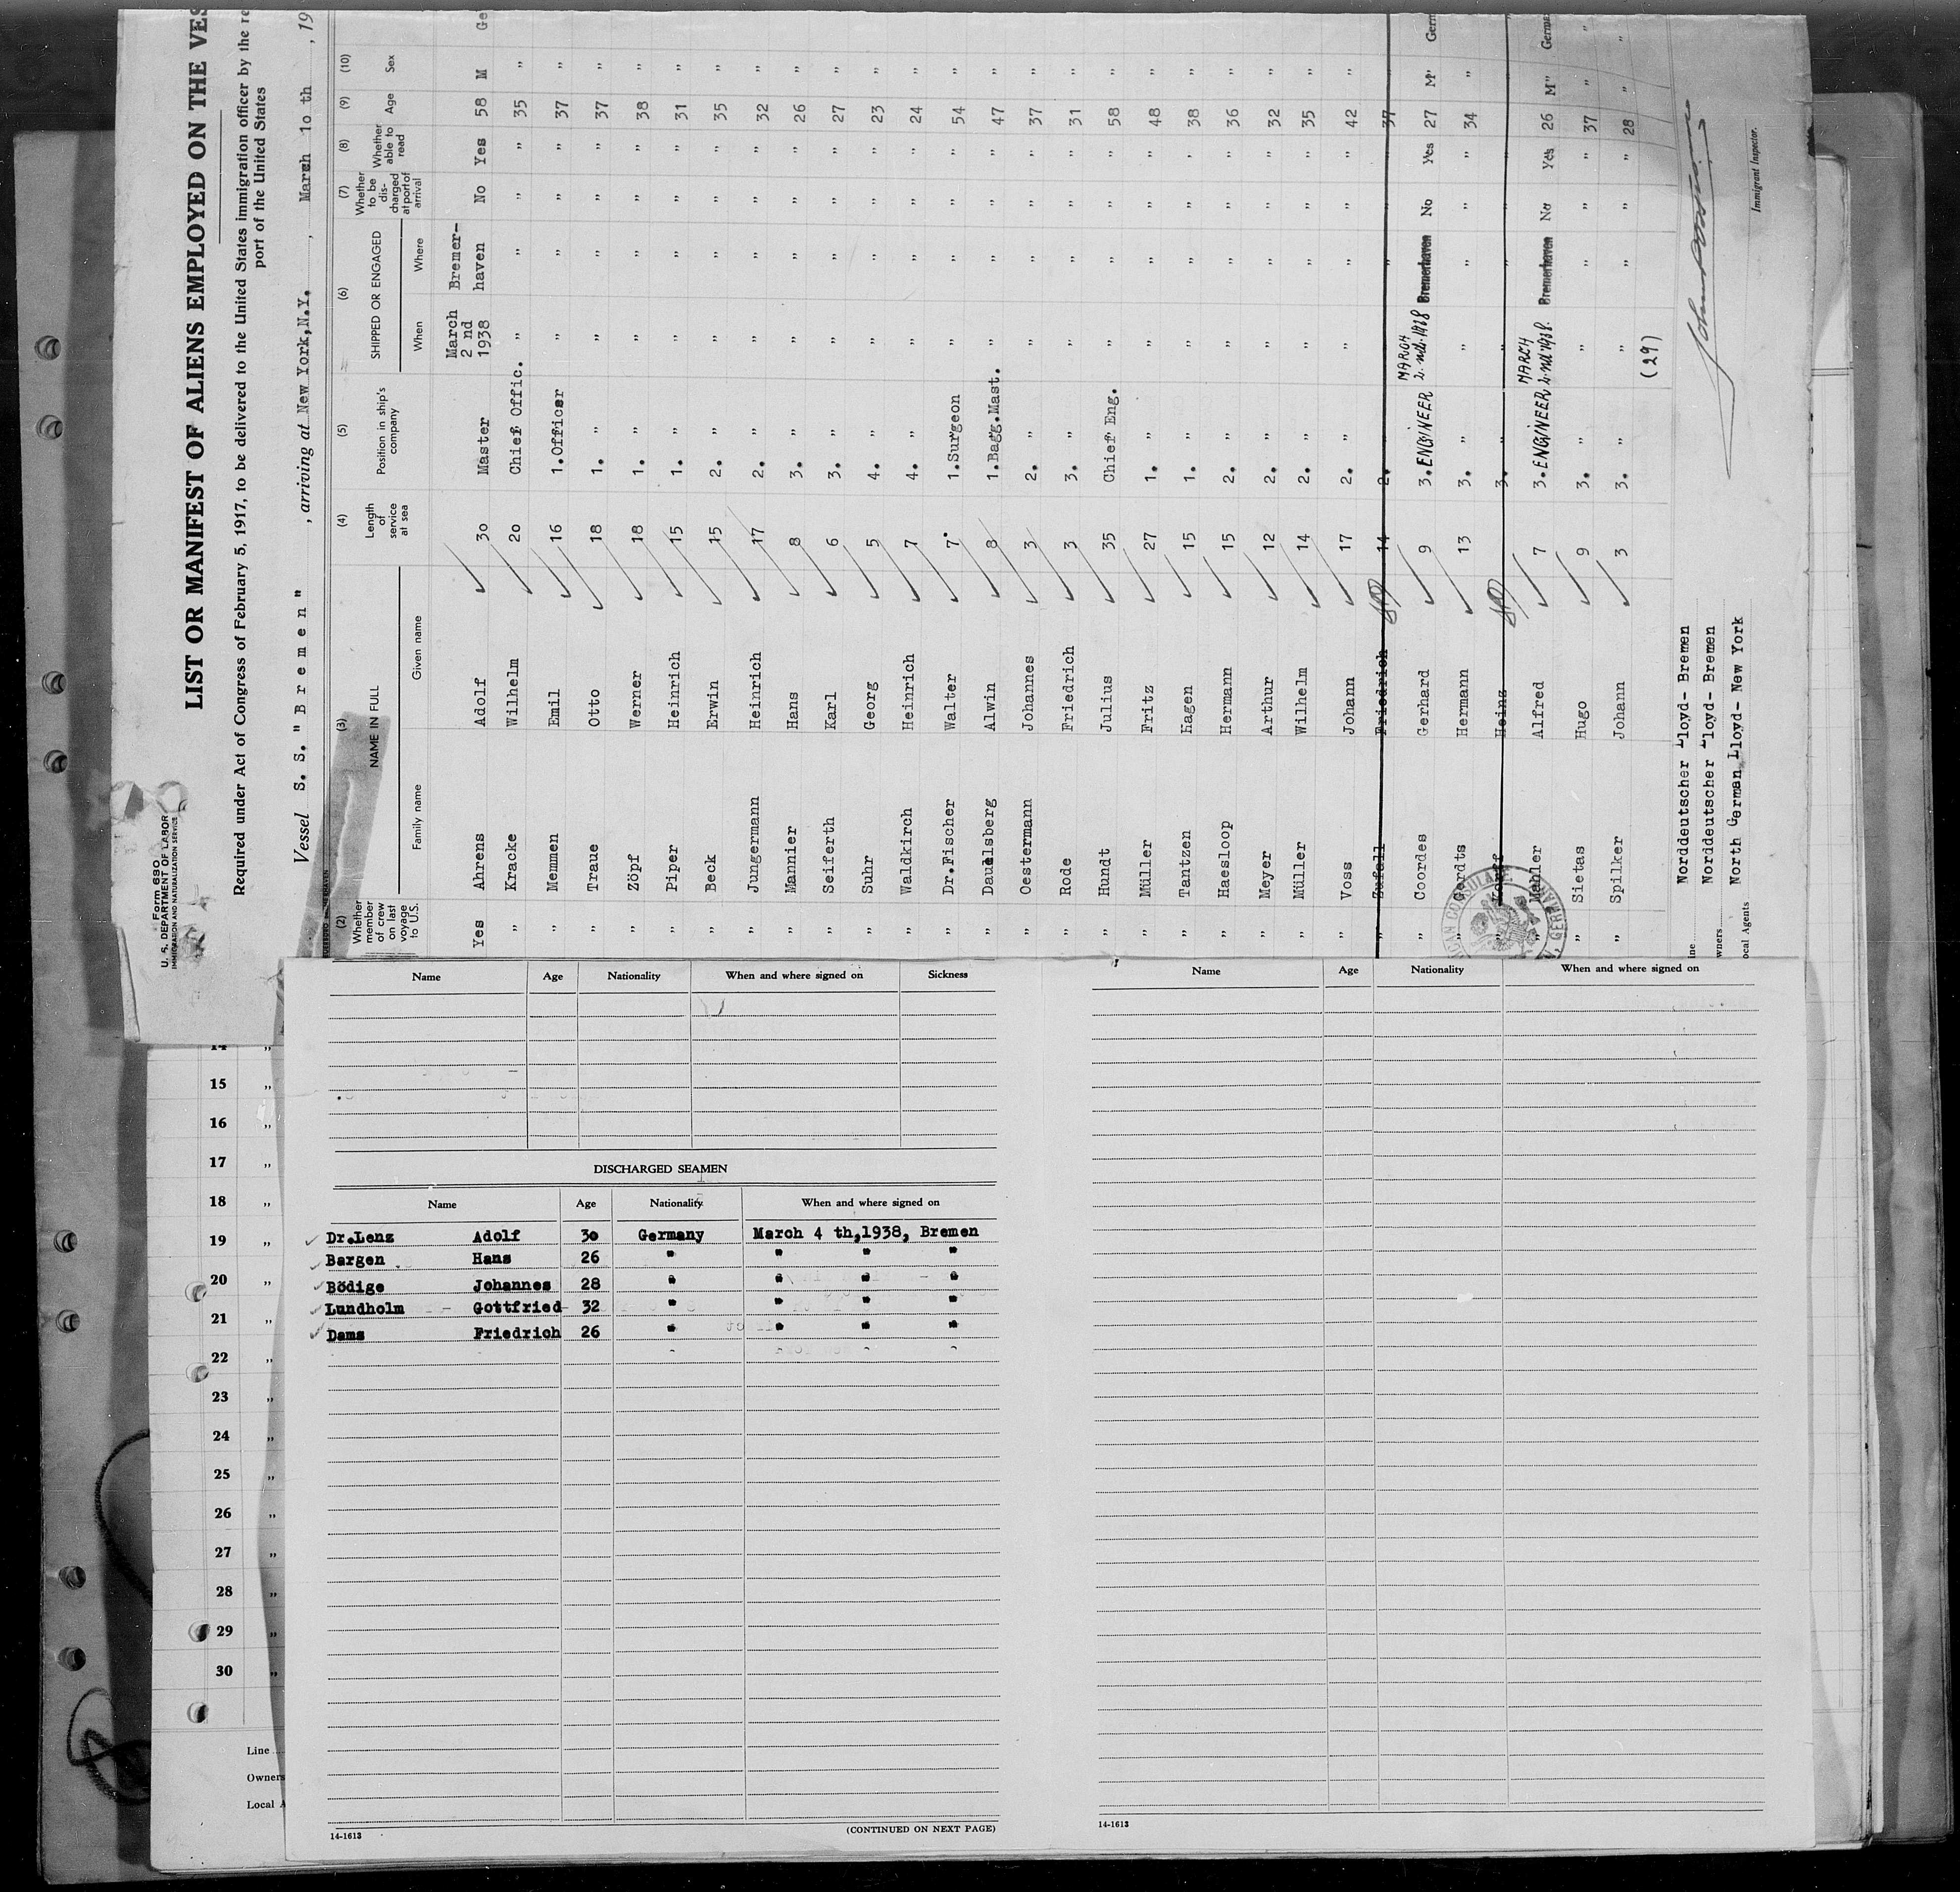 Form 680
U. S. DEPARTMENT OF LABOR
IMMIGRATION AND NATURALIZATION SERVICE
LIST OR MANIFEST OF ALIENS EMPLOYED ON THE VES
Required under Act of Congress of February 5, 1917, to be delivered to the United States immigration officer by the re
port of the United States
Vessel S. S. "Bremen" , arriving at New York, N.Y. , March 10 th , 19
(2) (3) (4) (5) (6) (7) (8) (9) (10)
Whether member of crew on last voyage to U.S. NAME IN FULL Length of service at sea Position in ship's company SHIPPED OR ENGAGED Whether to be discharged at port of arrival Whether able to read Age Sex
Family name Given name When Where
Yes Ahrens Adolf 30 Master March 2 nd 1938 Bremer-haven No Yes 58 M Ge
" Kracke Wilhelm 20 Chief Offic. " " " " 35 "
" Memmen Emil 16 1.Officer " " " " 37 "
" Traue Otto 18 1. " " " " " 37 "
" Zöpf Werner 18 1. " " " " " 38 "
" Piper Heinrich 15 1. " " " " " 31 "
" Beck Erwin 15 2. " " " " " 35 "
" Jungermann Heinrich 17 2. " " " " " 32 "
" Mannier Hans 8 3. " " " " " 26 "
" Seiferth Karl 6 3. " " " " " 27 "
" Suhr Georg 5 4. " " " " " 23 "
" Waldkirch Heinrich 7 4. " " " " " 24 "
" Dr.Fischer Walter 7 1.Surgeon " " " " 54 "
" Dauelsberg Alwin 8 1.Bagg.Mast. " " " " 47 "
" Oestermann Johannes 3 2. " " " " " 37 "
" Rode Friedrich 3 3. " " " " " 31 "
" Hundt Julius 35 Chief Eng. " " " " 58 "
" Müller Fritz 27 1. " " " " " 48 "
" Tantzen Hagen 15 1. " " " " " 38 "
" Haesloop Hermann 15 2. " " " " " 36 "
" Meyer Arthur 12 2. " " " " " 32 "
" Müller Wilhelm 14 2. " " " " " 35 "
" Voss Johann 17 2. " " " " " 42 "
" Zufall Friedrich 14 2. " " 37
" Coordes Gerhard 9 3. ENGINEER MARCH 2. nd. 1938 Bremerhaven No Yes 27 M" Germ
" Gerdts Hermann 13 3. " " " " " 34 "
" Heinz 3. " " "
" Mahler Alfred 7 3. ENGINEER MARCH 2. nd 1938. Bremerhaven No Yes 26 M" Germa
" Sietas Hugo 9 3. " " " " " 37 " "
" Spilker Johann 3 3. " " " " " 28 " "
(29)
ine Norddeutscher Lloyd- Bremen
wners Norddeutscher Lloyd- Bremen
ocal Agents North German Lloyd- New York
Immigrant Inspector.
14 "
15 "
16 "
17 "
18 "
19 "
20 "
21 "
22 "
23 "
24 "
25 "
26 "
27 "
28 "
29 "
30 "
Line
Owners
Local A
Name Age Nationality When and where signed on Sickness
DISCHARGED SEAMEN
Name Age Nationality When and where signed on
Dr.Lenz Adolf 30 Germany March 4 th,1938, Bremen
Bargen Hans 26 " " " "
Bödige Johannes 28 " " " "
Lundholm Gottfried 32 " " " "
Dams Friedrich 26 " " " "
14-1613 (CONTINUED ON NEXT PAGE)
Name Age Nationality When and where signed on
14-1613